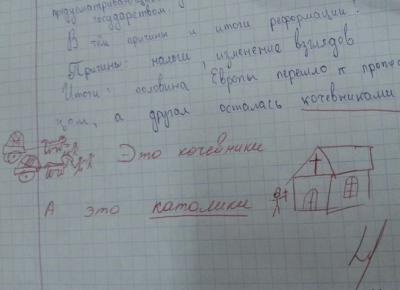 предусматривающее
государством.
В чём причины и итоги реформации?
Причины: налоги, изменение взглядов
Итоги: половина Европы перешло к протес
цам, а другая осталась кочевниками
Это кочевники
А это католики
4